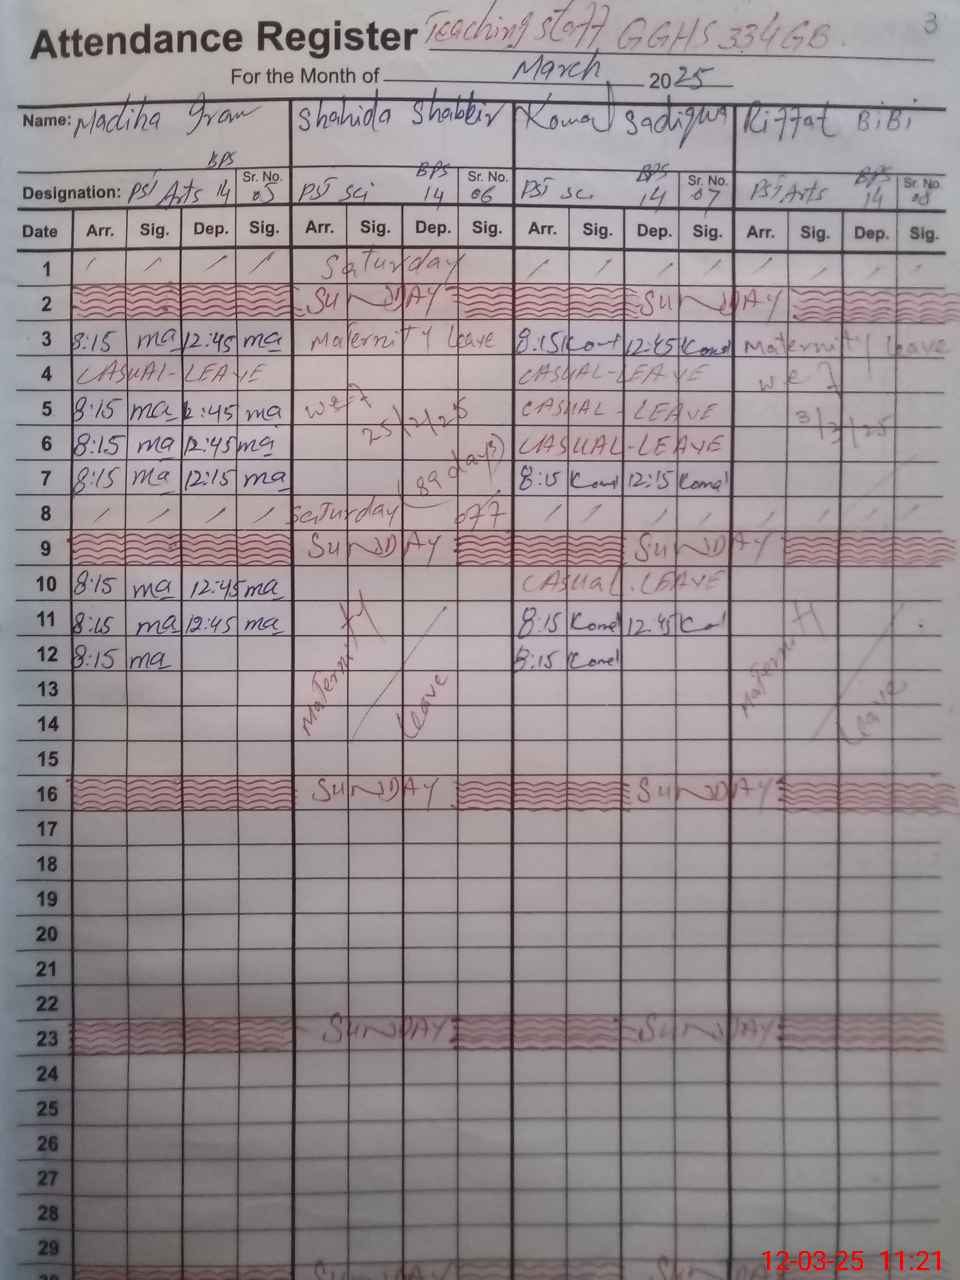 Attendance Register Teaching staff GGHS 334GB. 3
For the Month of March 2025
Name: Madiha Iram Shahida Shabbir Komal Sadiqua Riffat BiBi
BPS BPS BPS BPS
Sr. No. Sr. No. Sr. No. Sr. No.
Designation: PST Arts 14 05 PST Sci 14 06 PST Sc. 14 07 PST Arts 14 08
Date Arr. Sig. Dep. Sig. Arr. Sig. Dep. Sig. Arr. Sig. Dep. Sig. Arr. Sig. Dep. Sig.
1 / / / / Saturday / / / / / / / /
2 SUNDAY SUNDAY
3 8:15 ma 12:45 ma Maternity leave 8:15 Komal 12:45 Komal Maternity leave
4 CASUAL-LEAVE CASUAL-LEAVE w e f
5 8:15 ma 12:45 ma w e f 25/2/25 CASUAL-LEAVE 3/3/25
6 8:15 ma 12:45 ma CASUAL-LEAVE
7 8:15 ma 12:15 ma (89 days) 8:15 Komal 12:15 Komal
8 / / / / Saturday off / / / / / / / /
9 SUNDAY SUNDAY
10 8:15 ma 12:45 ma CASUAL-LEAVE
11 8:15 ma 12:45 ma 8:15 Komal 12:45
12 8:15 ma Maternity leave 8:15 Komal Maternity leave
13
14
15
16 SUNDAY SUNDAY
17
18
19
20
21
22
23 SUNDAY SUNDAY
24
25
26
27
28
29
12-03-25 11:21